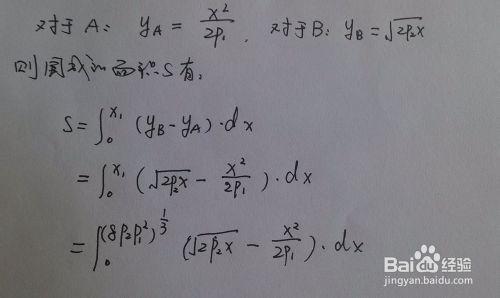 对于A: y_A = x²/2p₁. 对于B: y_B = √2p₂x
则围成的面积S有:
S = ∫₀^x₁ (y_B - y_A)·dx
= ∫₀^x₁ (√2p₂x - x²/2p₁)·dx
= ∫₀^(8p₂p₁²)^1/3 (√2p₂x - x²/2p₁)·dx
Baidu经验
jingyan.baidu.com